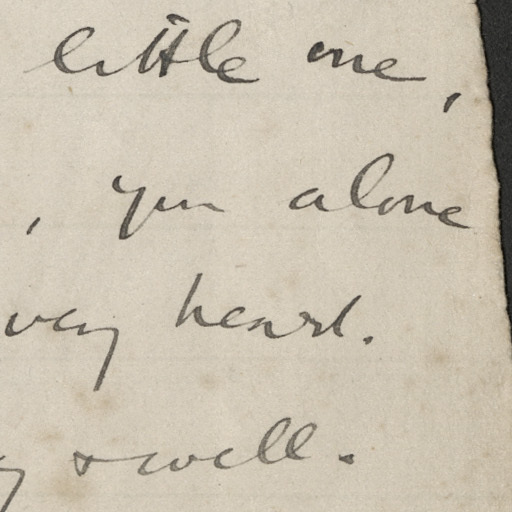 little one,
, you alone
very heart.
y & well.